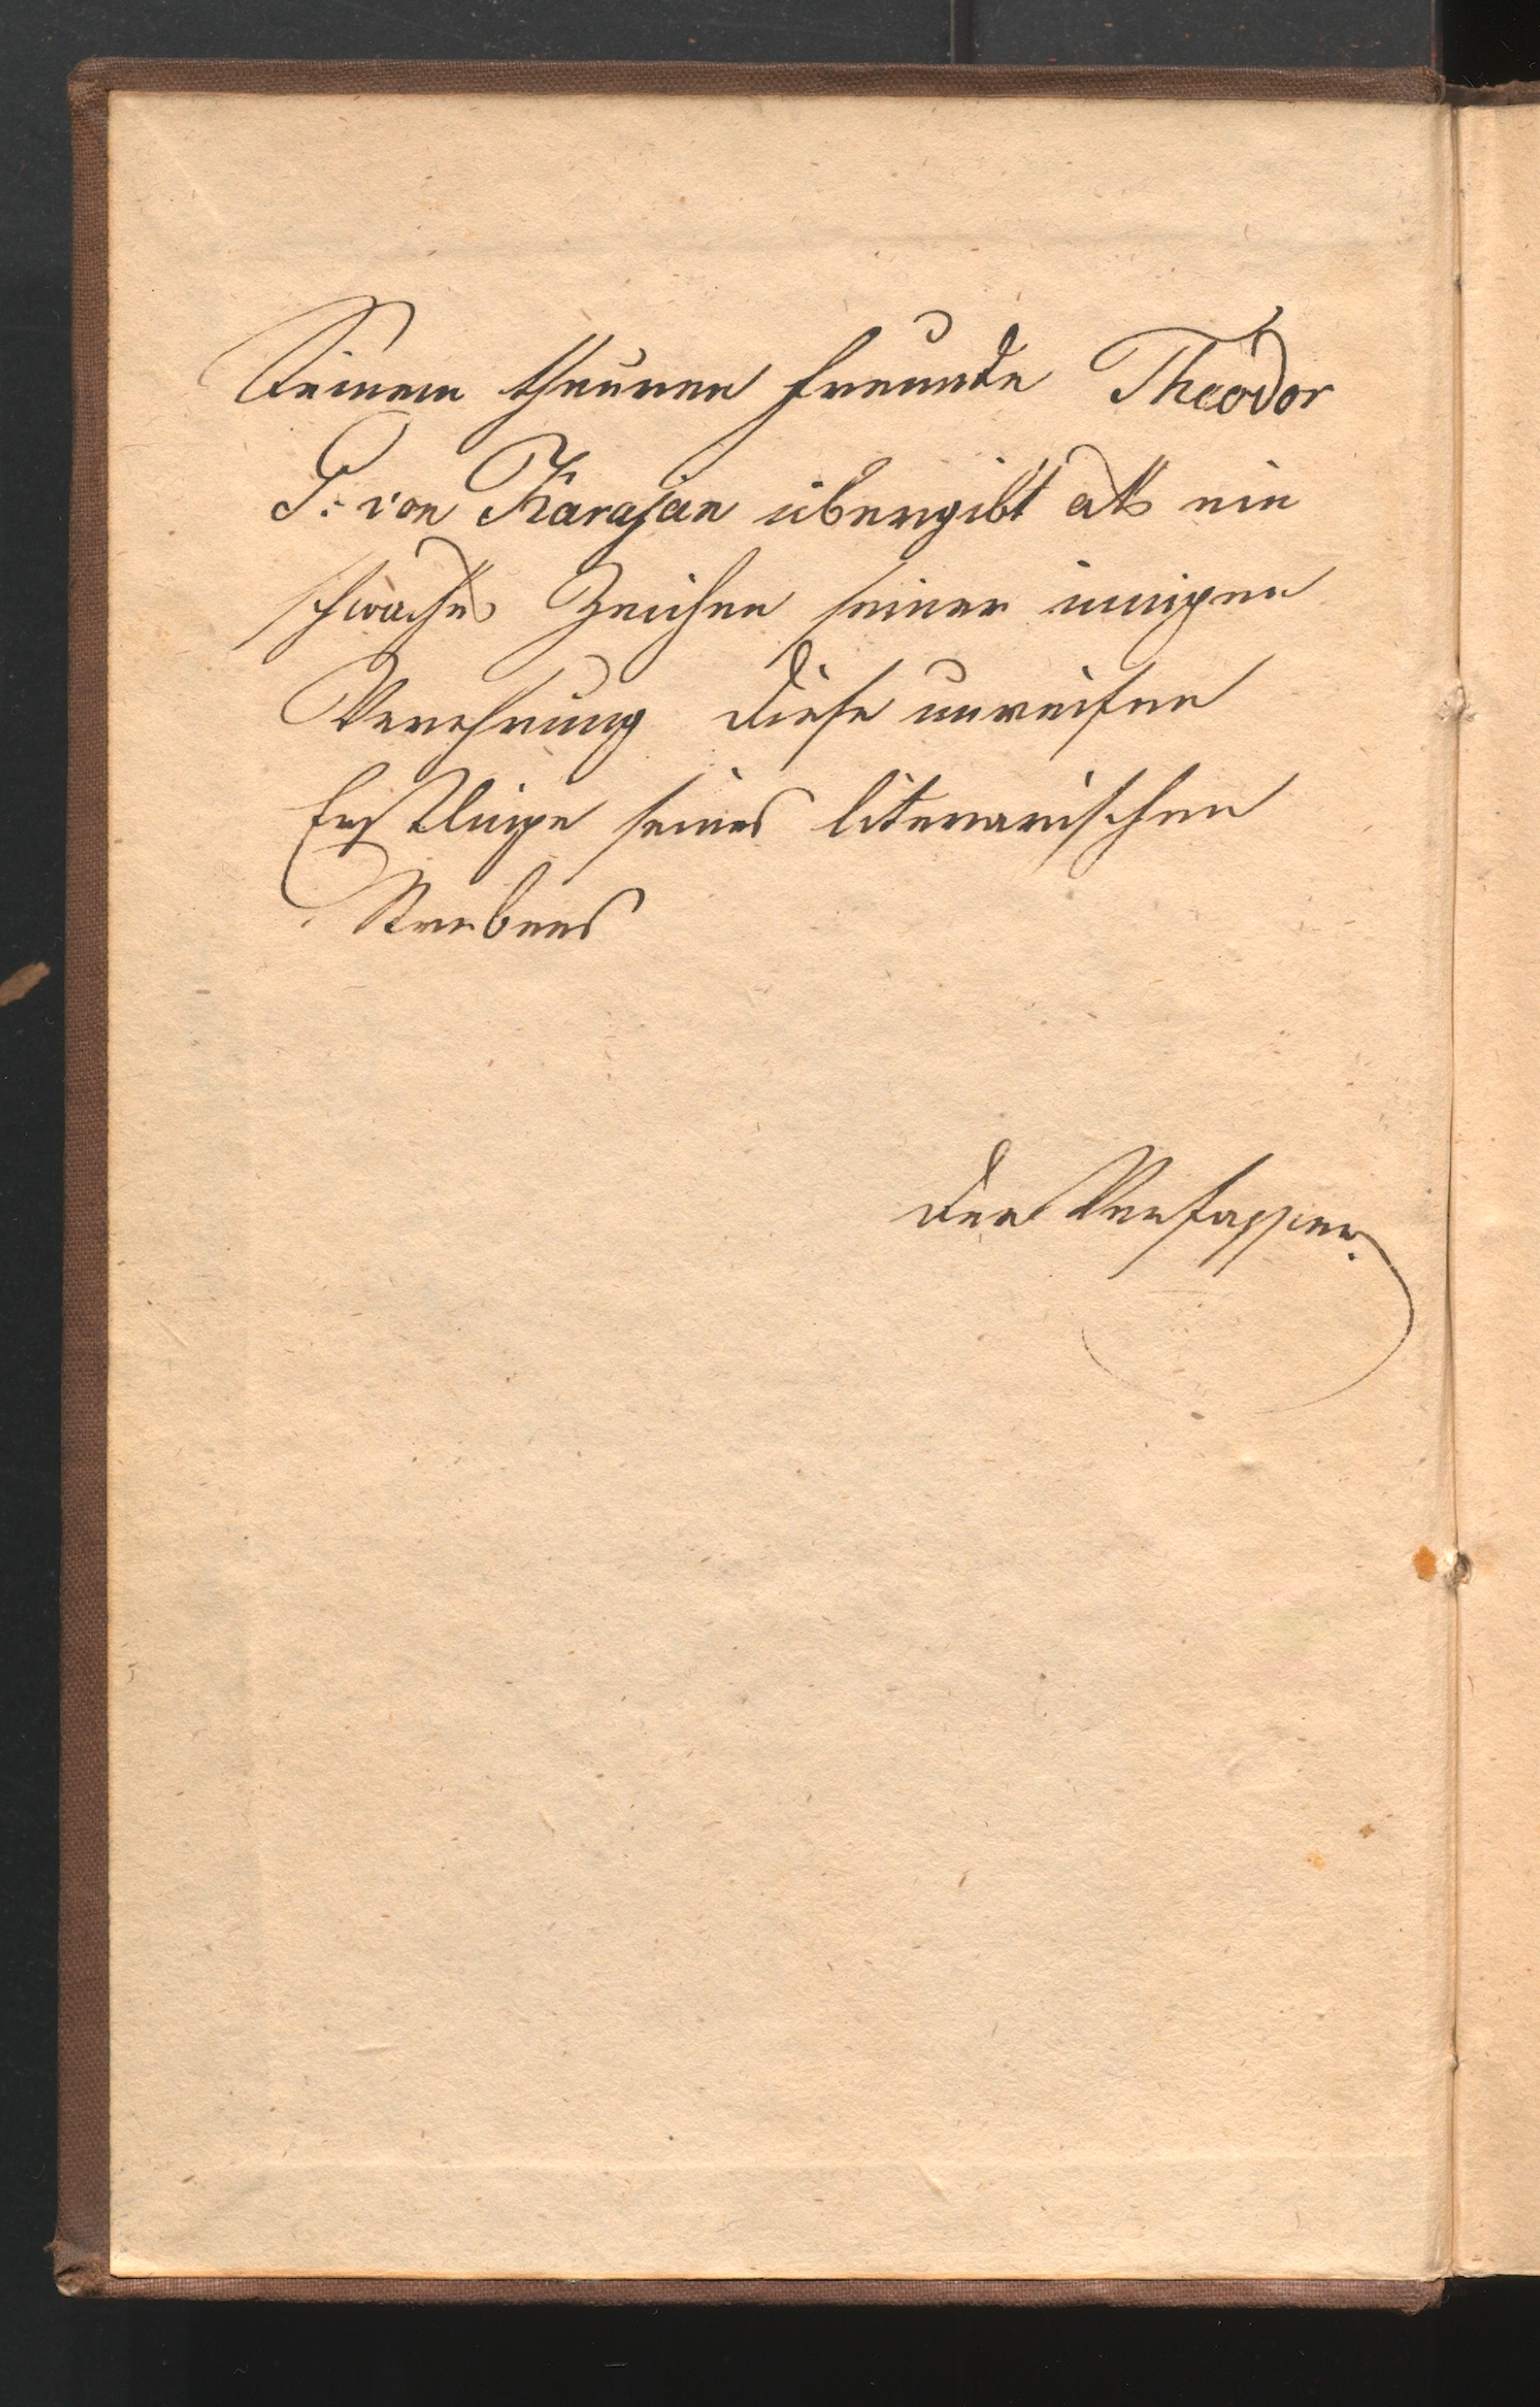 Seinem theuren Freunde Theodor
G. von Karajan übergibt als ein
schwaches Zeichen seiner innigen
Verehrung diese unreifen
Erstlinge seines literarischen
Strebens
der Verfasser.